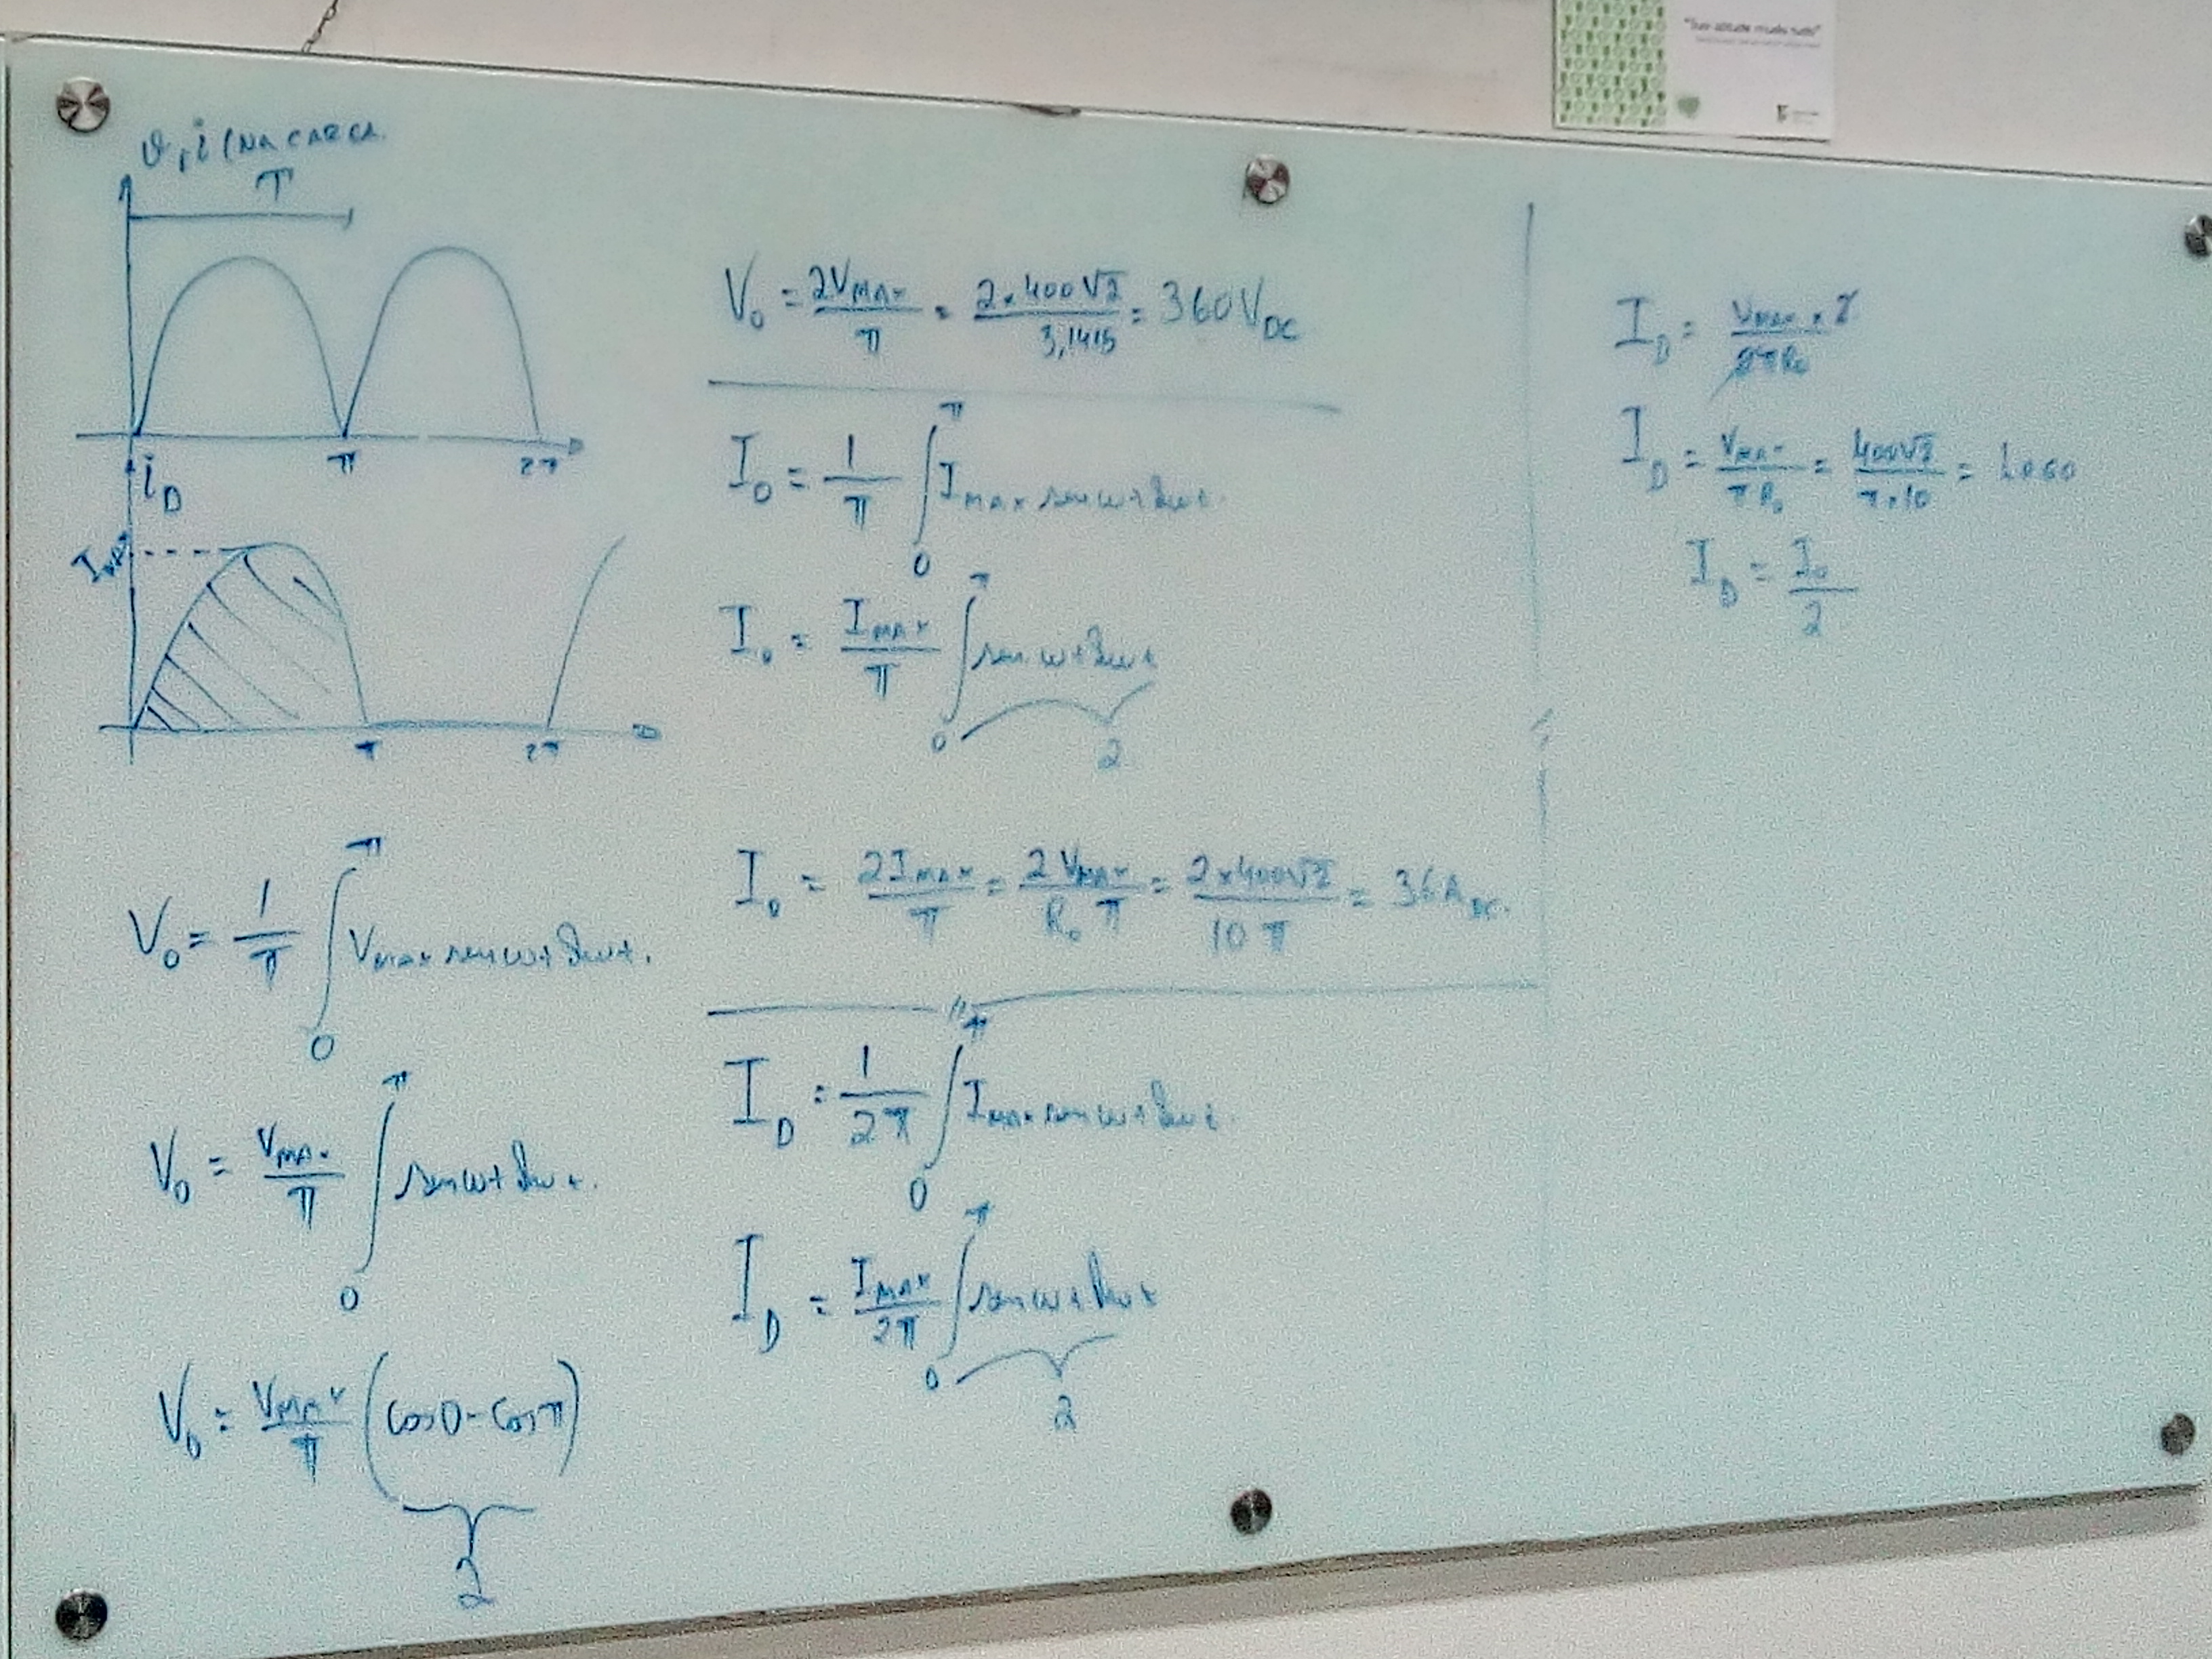 v, i (NA CARGA.
T
π 2π
i_D
I_MAX
π 2π
V_0 = 1/π ∫_0^π V_MAX sen wt dwt.
V_0 = V_MAX/π ∫_0^π sen wt dwt.
V_0 = V_MAX/π (cos0 - cosπ)
2
V_0 = 2V_MAX/π = 2×400√2/3,1415 = 360V_DC
I_0 = 1/π ∫_0^π I_MAX sen wt dwt.
I_0 = I_MAX/π ∫_0^π sen wt dwt
2
I_0 = 2I_MAX/π = 2V_MAX/R_0 π = 2×400√2/10π = 36A_DC.
I_D = 1/2π ∫_0^π I_MAX sen wt dwt.
I_D = I_MAX/2π ∫_0^π sen wt dwt
2
I_D = V_MAX × 2/2πR_0
I_D = V_MAX/πR_0 = 400√2/π×10 =
I_D = I_0/2